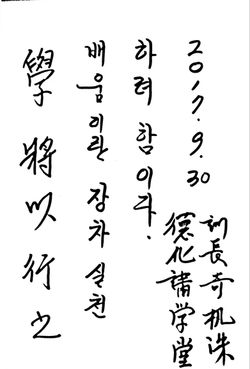 學將以行之
배움이란 장차 실천
하려 함이다.
2017. 9. 30
德化講学堂
訓長奇机洙